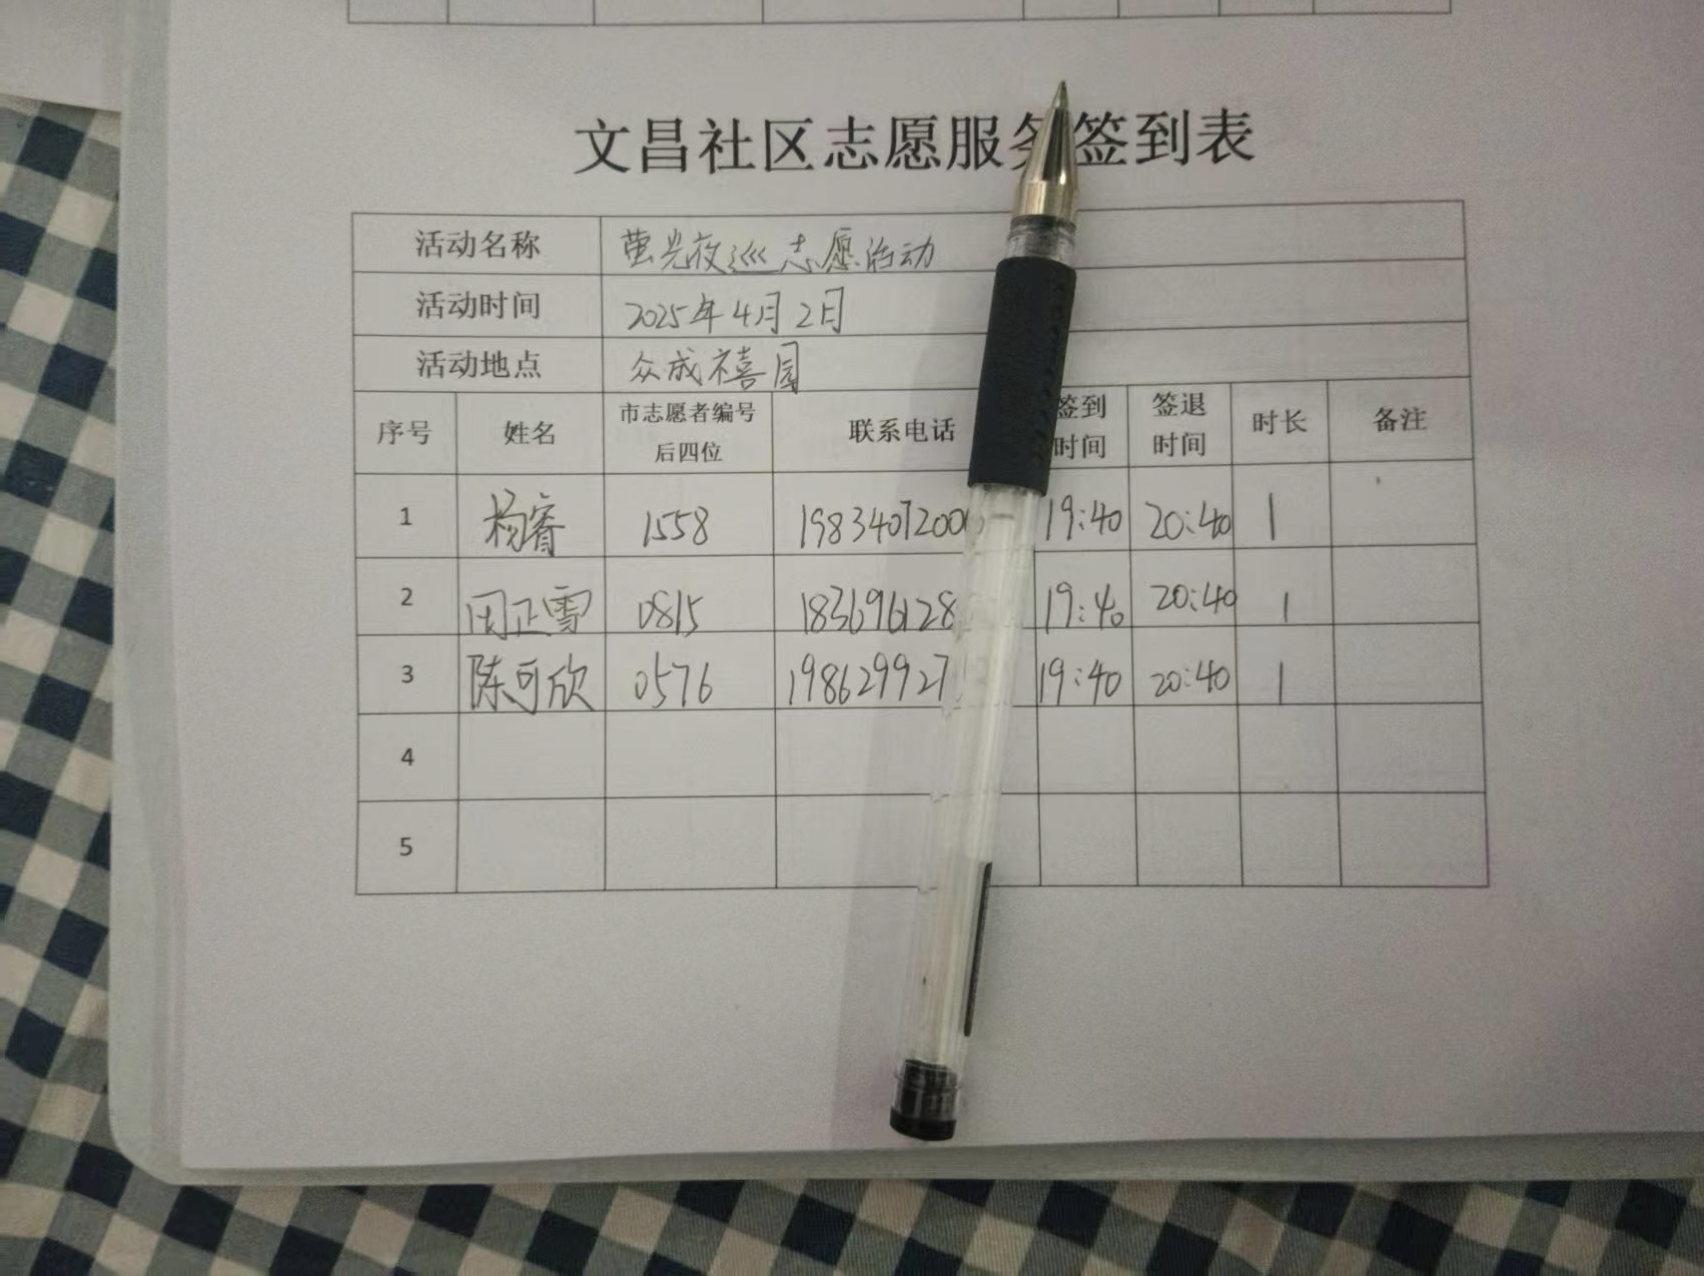 文昌社区志愿服务签到表
活动名称 萤光夜巡志愿活动
活动时间 2025年4月2日
活动地点 众成禧园
序号 姓名 市志愿者编号后四位 联系电话 签到时间 签退时间 时长 备注
1 杨睿 1558 1983407200 19:40 20:40 1
2 田正雪 0815 183696128 19:40 20:40 1
3 陈可欣 0576 198629927 19:40 20:40 1
4
5